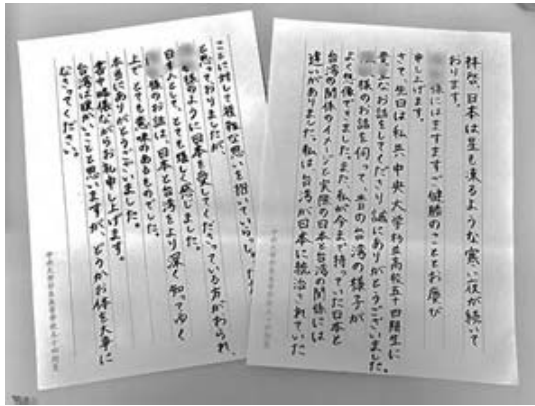 拝啓、日本は星も凍るような寒い夜が続いて
おります。
様にはますますご健勝のこととお慶び
申し上げます。
さて、先日は私共中央大学杉並高校五十四期生に
貴重なお話をしてくださり誠にありがとうございました。
様のお話を伺って、昔の台湾の様子が
よく想像できました。また、私が今まで持っていた日本と
台湾の関係のイメージと実際の日本と台湾の関係には
違いがありました。私は台湾が日本に統治されていた
中央大学杉並高等学校五十四期生
ことに対して複雑な思いを抱いていらっしゃる
と思っておりましたが、
様のように日本を愛してくださっている方がおられ、
日本人として、とても嬉しく感じました。
様のお話は、日本と台湾をより深く知ってゆく
上で、とても意味のあるものでした。
本当にありがとうございました。
書中略儀ながらお礼申し上げます。
台湾は暖かいことと思いますが、どうかお体を大事に
なさってください。
中央大学杉並高等学校五十四期生